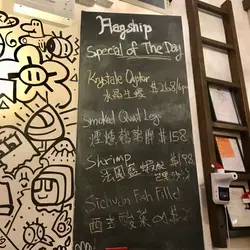 Flagship
Special of The Day
Krystale Oyster
水晶生蠔 $268/6pc
Smoked Quail Leg
煙燻鵪鶉脾 $158
Shrimp
法國藍蝦 $198
Sichuan Fish Fillet
酸菜